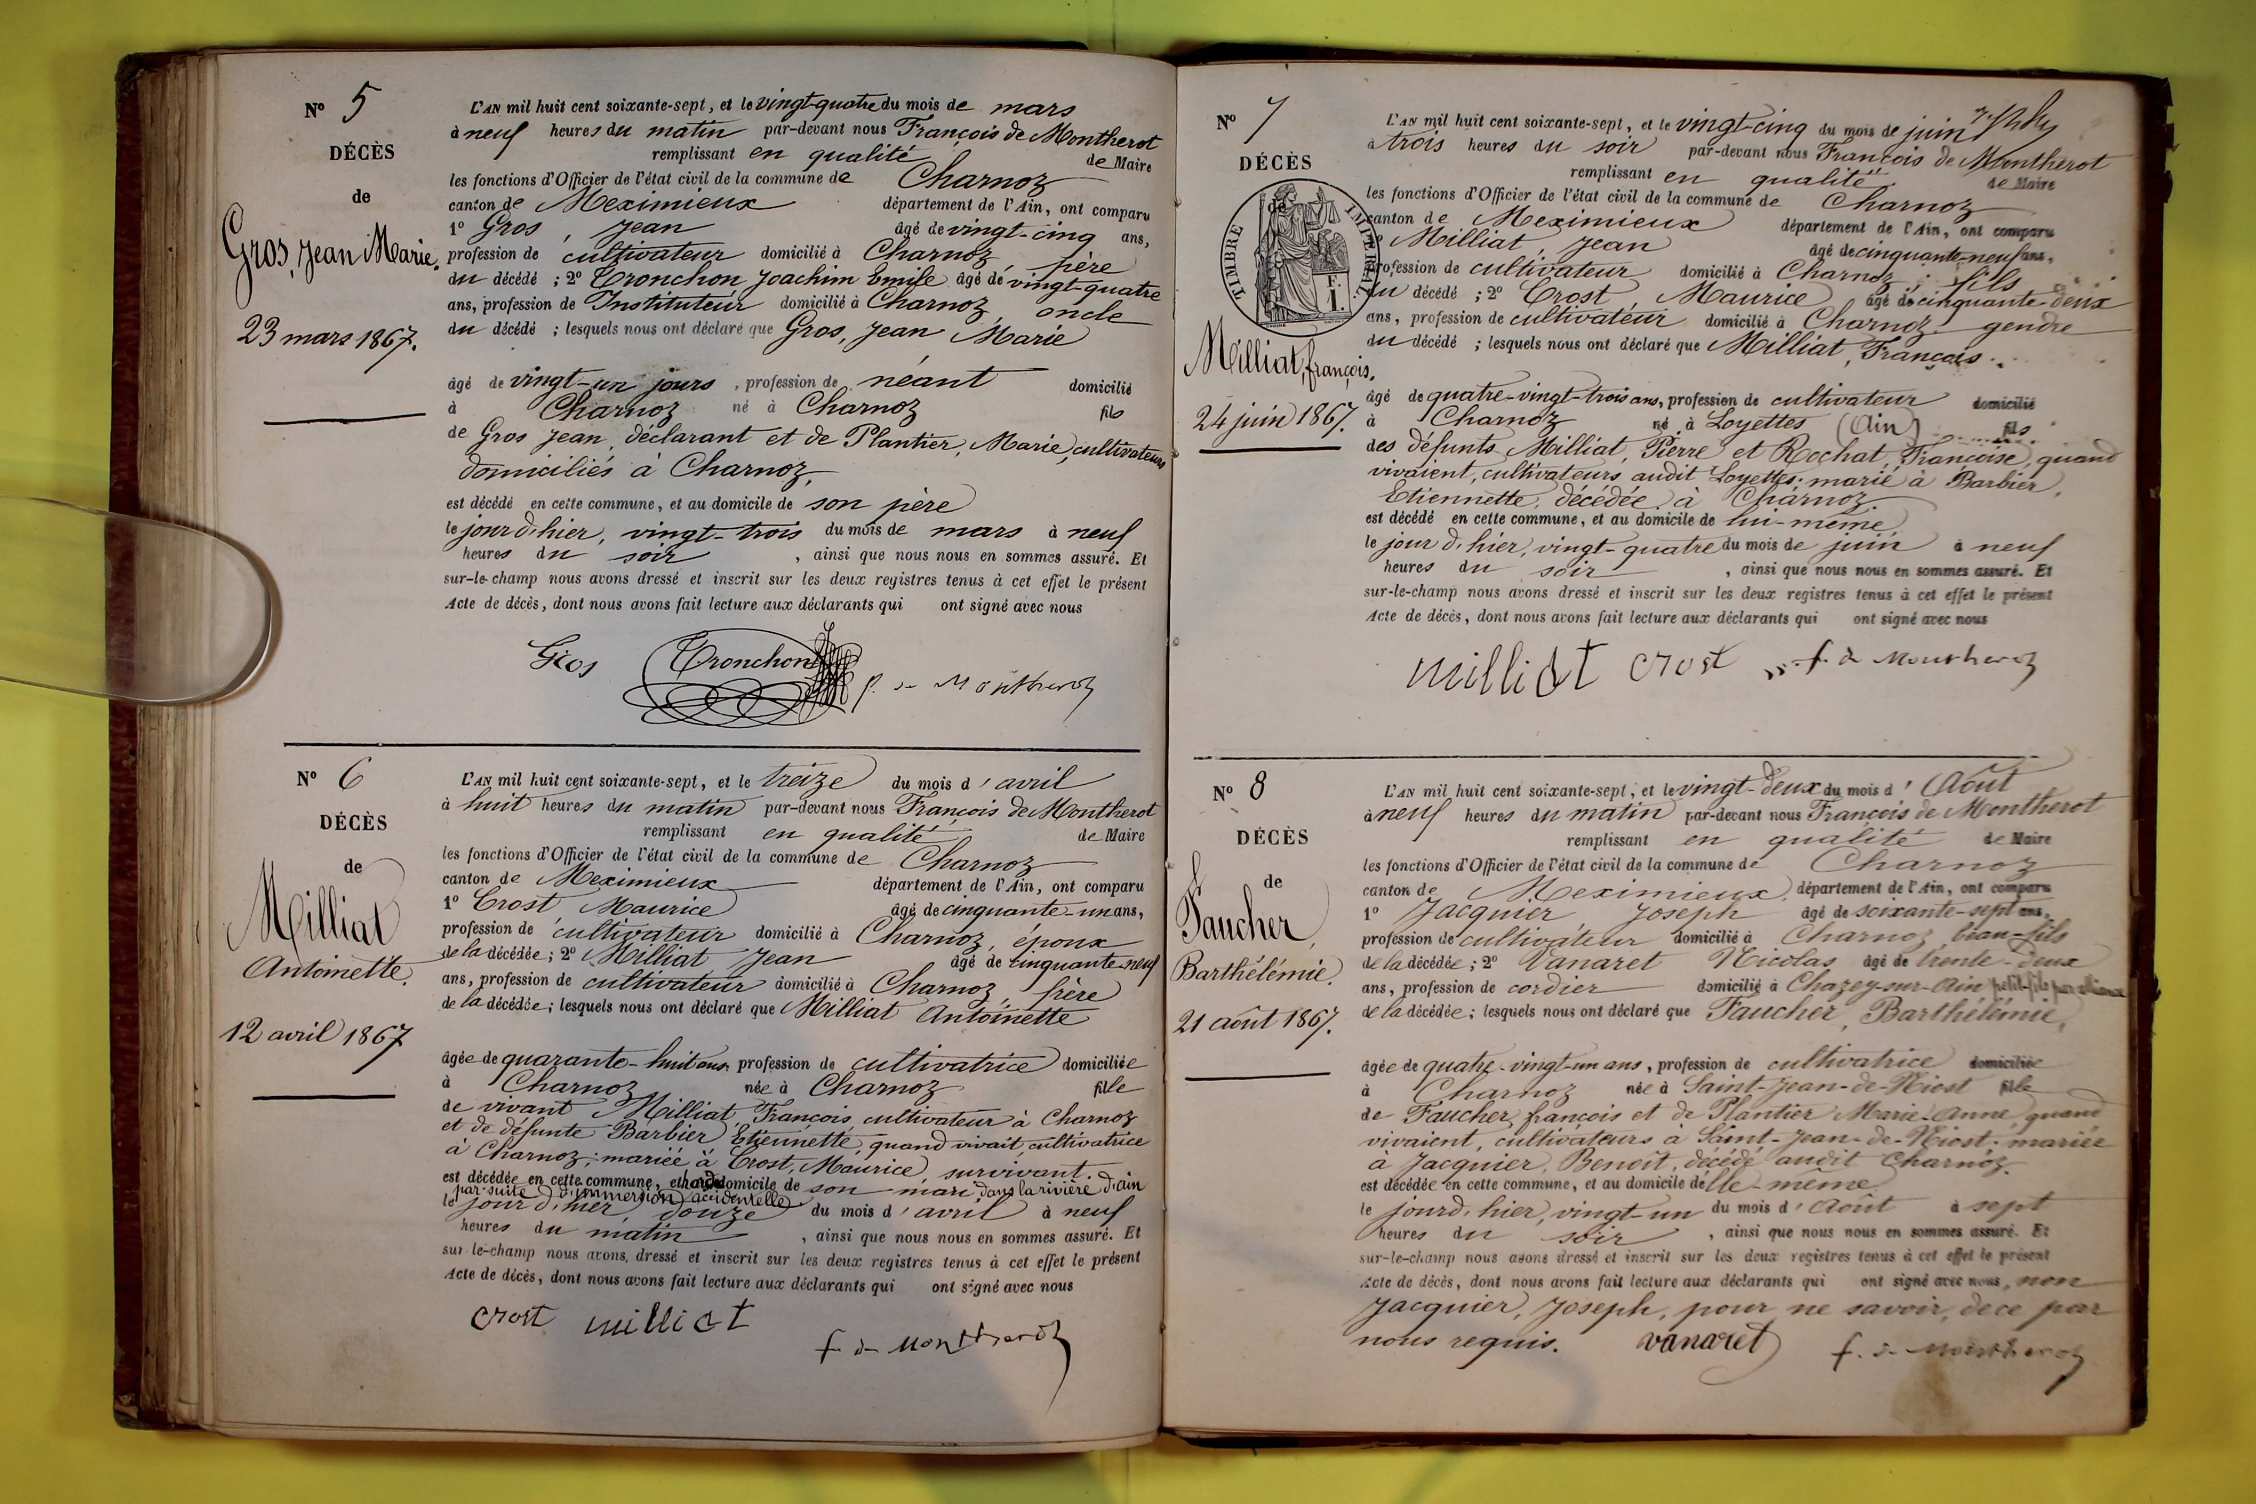 N° 5
DÉCÈS
de
Gros, Jean Marie.
23 mars 1867.
L'AN mil huit cent soixante-sept, et le vingt-quatre du mois de mars
à neuf heures du matin par-devant nous François de Montherot
remplissant en qualité de Maire
les fonctions d'Officier de l'état civil de la commune de Charnoz
canton de Meximieux département de l'Ain, ont comparu
1° Gros, Jean âgé de vingt-cinq ans,
profession de cultivateur domicilié à Charnoz, père
du décédé ; 2° Tronchon Joachim Emile âgé de vingt-quatre
ans, profession de Instituteur domicilié à Charnoz, oncle
du décédé ; lesquels nous ont déclaré que Gros, Jean Marie
âgé de vingt-un jours, profession de néant domicilié
à Charnoz né à Charnoz fils
de Gros Jean, déclarant et de Plantier, Marie, cultivateurs
domiciliés à Charnoz,
est décédé en cette commune, et au domicile de son père
le jour d'hier, vingt-trois du mois de mars à neuf
heures du soir, ainsi que nous nous en sommes assuré. Et
sur-le-champ nous avons dressé et inscrit sur les deux registres tenus à cet effet le présent
Acte de décès, dont nous avons fait lecture aux déclarants qui ont signé avec nous
Gros Tronchon f. de Montherot
N° 6
DÉCÈS
de
Milliat
Antoinette.
12 avril 1867
L'AN mil huit cent soixante-sept, et le treize du mois d'avril
à huit heures du matin par-devant nous François de Montherot
remplissant en qualité de Maire
les fonctions d'Officier de l'état civil de la commune de Charnoz
canton de Meximieux département de l'Ain, ont comparu
1° Crost Maurice âgé de cinquante-un ans,
profession de cultivateur domicilié à Charnoz, époux
de la décédée ; 2° Milliat Jean âgé de cinquante-neuf
ans, profession de cultivateur domicilié à Charnoz, frère
de la décédée ; lesquels nous ont déclaré que Milliat Antoinette
âgée de quarante-huit ans, profession de cultivatrice domiciliée
à Charnoz née à Charnoz fille
de vivant Milliat, François, cultivateur à Charnoz
et de défunte Barbier Etiennette, quand vivait, cultivatrice
à Charnoz ; mariée à Crost, Maurice, survivant.
est décédée en cette commune, et domicile de son mari, dans la rivière d'ain
par suite d'immersion accidentelle
le jour d'hier, douze du mois d'avril à neuf
heures du matin, ainsi que nous nous en sommes assuré. Et
sur-le-champ nous avons dressé et inscrit sur les deux registres tenus à cet effet le présent
Acte de décès, dont nous avons fait lecture aux déclarants qui ont signé avec nous
crost milliat
f. de Montherot
N° 7
DÉCÈS
de
TIMBRE IMPÉRIAL
1 F.
Milliat, françois.
24 juin 1867.
L'AN mil huit cent soixante-sept, et le vingt-cinq du mois de juin
à trois heures du soir par-devant nous François de Montherot
remplissant en qualité de Maire
les fonctions d'Officier de l'état civil de la commune de Charnoz
canton de Meximieux département de l'Ain, ont comparu
1° Milliat, Jean âgé de cinquante-neuf ans,
profession de cultivateur domicilié à Charnoz ; fils
du décédé ; 2° Crost, Maurice âgé de cinquante-deux
ans, profession de cultivateur domicilié à Charnoz gendre
du décédé ; lesquels nous ont déclaré que Milliat, François
âgé de quatre-vingt-trois ans, profession de cultivateur domicilié
à Charnoz né à Loyettes (Ain) fils
des défunts Milliat, Pierre et Rochat, Françoise, quand
vivaient, cultivateurs audit Loyettes ; marié à Barbier,
Etiennette, décédée à Charnoz
est décédé en cette commune, et au domicile de lui-même
le jour d'hier, vingt-quatre du mois de juin à neuf
heures du soir, ainsi que nous nous en sommes assuré. Et
sur-le-champ nous avons dressé et inscrit sur les deux registres tenus à cet effet le présent
Acte de décès, dont nous avons fait lecture aux déclarants qui ont signé avec nous
milliat crost f. de Montherot
N° 8
DÉCÈS
de
Faucher,
Barthélémie.
21 août 1867.
L'AN mil huit cent soixante-sept, et le vingt-deux du mois d'Août
à neuf heures du matin par-devant nous François de Montherot
remplissant en qualité de Maire
les fonctions d'Officier de l'état civil de la commune de Charnoz
canton de Meximieux département de l'Ain, ont comparu
1° Jacquier Joseph âgé de soixante-sept ans,
profession de cultivateur domicilié à Charnoz, beau-fils
de la décédée ; 2° Vanaret Nicolas âgé de trente-deux
ans, profession de cordier domicilié à Chazey-sur-Ain petit-fils par alliance
de la décédée ; lesquels nous ont déclaré que Faucher, Barthélémie,
âgée de quatre-vingt-un ans, profession de cultivatrice domiciliée
à Charnoz née à Saint-Jean-de-Niost fille
de Faucher, françois et de Plantier Marie-Anne, quand
vivaient, cultivateurs à Saint-Jean-de-Niost ; mariée
à Jacquier, Benoît, décédé audit Charnoz.
est décédée en cette commune, et au domicile d'elle-même
le jour d'hier, vingt-un du mois d'Août à sept
heures du soir, ainsi que nous nous en sommes assuré. Et
sur-le-champ nous avons dressé et inscrit sur les deux registres tenus à cet effet le présent
Acte de décès, dont nous avons fait lecture aux déclarants qui ont signé avec nous, non
Jacquier, Joseph, pour ne savoir, de ce par
nous requis. vanaret f. de Montherot